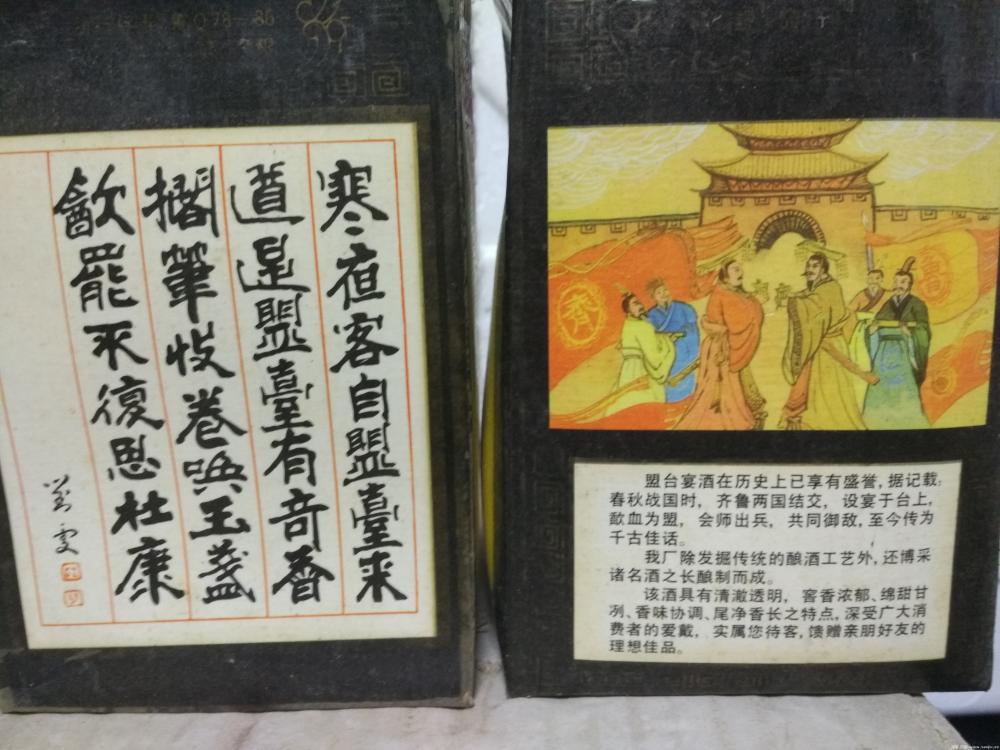 Q78—86
寒夜客自盟臺来
道是盟臺有奇香
擱筆收卷喚玉盞
㱃罷不復思杜康
齊
盟台宴酒在历史上已享有盛誉,据记载:
春秋战国时, 齐鲁两国结交, 设宴于台上,
歃血为盟, 会师出兵, 共同御敌,至今传为
千古佳话。
我厂除发掘传统的酿酒工艺外,还博采
诸名酒之长酿制而成。
该酒具有清澈透明, 窖香浓郁、绵甜甘
冽、香味协调、尾净香长之特点,深受广大消
费者的爱戴, 实属您待客,馈赠亲朋好友的
理想佳品。